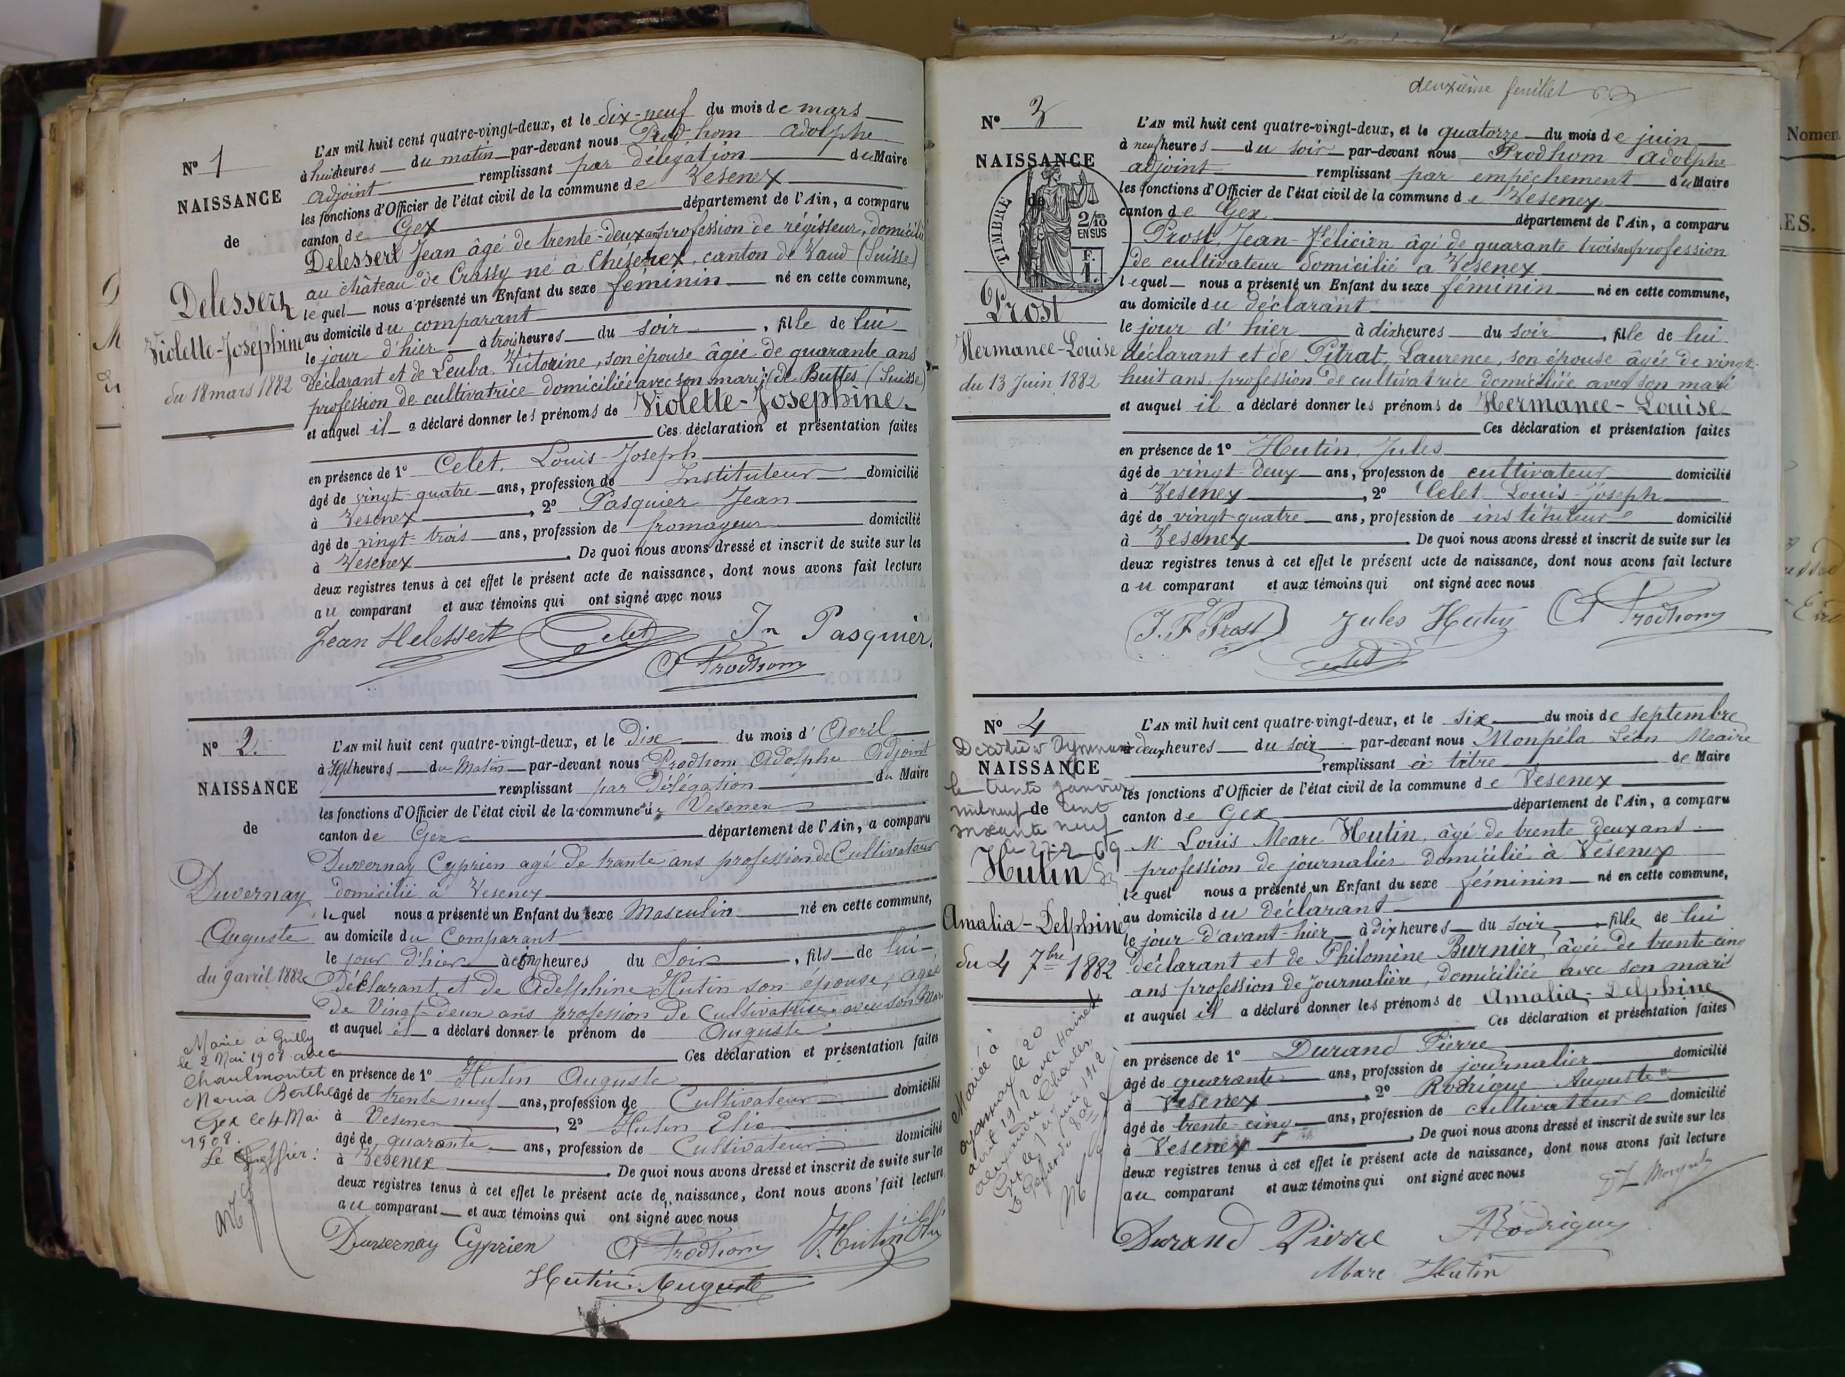 N° 1
NAISSANCE
de
Delessert
Violette-Joséphine
du 18 mars 1882
L'AN mil huit cent quatre-vingt-deux, et le dix-neuf du mois de mars
à huit heures du matin par-devant nous Prodhom Adolphe
adjoint remplissant par délégation du Maire
les fonctions d'Officier de l'état civil de la commune de Vesenex
canton de Gex département de l'Ain, a comparu
Delessert Jean âgé de trente-deux ans profession de régisseur, domicilié
au château de Crassy né à Cheserex, canton de Vaud (Suisse)
lequel nous a présenté un Enfant du sexe féminin né en cette commune,
au domicile du comparant
le jour d'hier à trois heures du soir, fille de lui
déclarant et de Leuba Victorine, son épouse âgée de quarante ans
profession de cultivatrice domiciliée avec son mari de Buttes (Suisse)
et auquel il a déclaré donner les prénoms de Violette-Joséphine
Ces déclaration et présentation faites
en présence de 1° Celet, Louis-Joseph
âgé de vingt-quatre ans, profession de Instituteur domicilié
à Vesenex, 2° Pasquier Jean
âgé de vingt-trois ans, profession de fromageur domicilié
à Vesenex. De quoi nous avons dressé et inscrit de suite sur les
deux registres tenus à cet effet le présent acte de naissance, dont nous avons fait lecture
au comparant et aux témoins qui ont signé avec nous
Jean Delessert Celet Jn Pasquier
A Prodhom
N° 2.
NAISSANCE
de
Duvernay
Auguste
du 9 avril 1882
L'AN mil huit cent quatre-vingt-deux, et le Dix du mois d'Avril
à Sept heures du Matin par-devant nous Prodhom Adolphe Adjoint
remplissant par Délégation du Maire
les fonctions d'Officier de l'état civil de la commune de Vesenex
canton de Gex département de l'Ain, a comparu
Duvernay Cyprien agé de trante ans profession de Cultivateur
domicilié à Vesenex
lequel nous a présenté un Enfant du sexe Masculin né en cette commune,
au domicile du Comparant
le jour d'hier à cinq heures du Soir, fils de lui
déclarant et de Adelphine Hutin son épouse, agée
de Vingt-deux ans profession de Cultivatrice avec son Mari
et auquel il a déclaré donner le prénom de Auguste
Ces déclaration et présentation faites
en présence de 1° Hutin Auguste
âgé de trente neuf ans, profession de Cultivateur domicilié
à Vesenex, 2° Hutin Elie
âgé de quarante ans, profession de Cultivateur domicilié
à Vesenex. De quoi nous avons dressé et inscrit de suite sur les
deux registres tenus à cet effet le présent acte de naissance, dont nous avons fait lecture
au comparant et aux témoins qui ont signé avec nous
Duvernay Cyprien A Prodhom Hutin Elie
Hutin Auguste
Marié à Grilly
le 2 Mai 1908 avec
Chaulmontet
Maria Berthe
Gex le 4 Mai
1908.
Le Greffier:
deuxième feuillet
N° 3
NAISSANCE
de
TIMBRE
2/10 EN SUS
F. 1.
Prost
Hermance-Louise
du 13 Juin 1882
L'AN mil huit cent quatre-vingt-deux, et le quatorze du mois de juin
à neuf heures du soir par-devant nous Prodhom Adolphe
adjoint remplissant par empêchement du Maire
les fonctions d'Officier de l'état civil de la commune de Vesenex
canton de Gex département de l'Ain, a comparu
Prost, Jean-Félicien âgé de quarante trois ans profession
de cultivateur domicilié à Vesenex
lequel nous a présenté un Enfant du sexe féminin né en cette commune,
au domicile du déclarant
le jour d'hier à dix heures du soir, fille de lui
déclarant et de Pitrat, Laurence, son épouse âgée de vingt-
huit ans, profession de cultivatrice domiciliée avec son mari
et auquel il a déclaré donner les prénoms de Hermance-Louise
Ces déclaration et présentation faites
en présence de 1° Hutin, Jules
âgé de vingt-deux ans, profession de cultivateur domicilié
à Vesenex, 2° Celet Louis-Joseph
âgé de vingt-quatre ans, profession de instituteur domicilié
à Vesenex. De quoi nous avons dressé et inscrit de suite sur les
deux registres tenus à cet effet le présent acte de naissance, dont nous avons fait lecture
au comparant et aux témoins qui ont signé avec nous
J. F. Prost Jules Hutin A Prodhom
Celet
N° 4
NAISSANCE
de
Décédée à
le trente janvier
mil neuf cent
soixante neuf
le 27-2-69
Hutin
Amalia-Delphine
du 4 7bre 1882
L'AN mil huit cent quatre-vingt-deux, et le six du mois de septembre
à deux heures du soir par-devant nous Monpéla Léon Maire
remplissant à titre de Maire
les fonctions d'Officier de l'état civil de la commune de Vesenex
canton de Gex département de l'Ain, a comparu
Mr Louis Marc Hutin, âgé de trente deux ans
profession de journalier domicilié à Vesenex
lequel nous a présenté un Enfant du sexe féminin né en cette commune,
au domicile du déclarant
le jour d'avant-hier à dix heures du soir, fille de lui
déclarant et de Philomène Burnier âgée de trente cinq
ans profession de journalière, domiciliée avec son mari
et auquel il a déclaré donner les prénoms de Amalia-Delphine
Ces déclaration et présentation faites
en présence de 1° Durand Pierre
âgé de quarante ans, profession de journalier domicilié
à Vesenex, 2° Rodrigue Auguste
âgé de trente-cinq ans, profession de cultivateur domicilié
à Vesenex. De quoi nous avons dressé et inscrit de suite sur les
deux registres tenus à cet effet le présent acte de naissance, dont nous avons fait lecture
au comparant et aux témoins qui ont signé avec nous
Durand Pierre Rodrigue
Marc Hutin
Mariée à
Oyonnax le 20
avril 1912 avec
Alexandre Charles
Gex le 1er juin 1912
Nomen
ES.